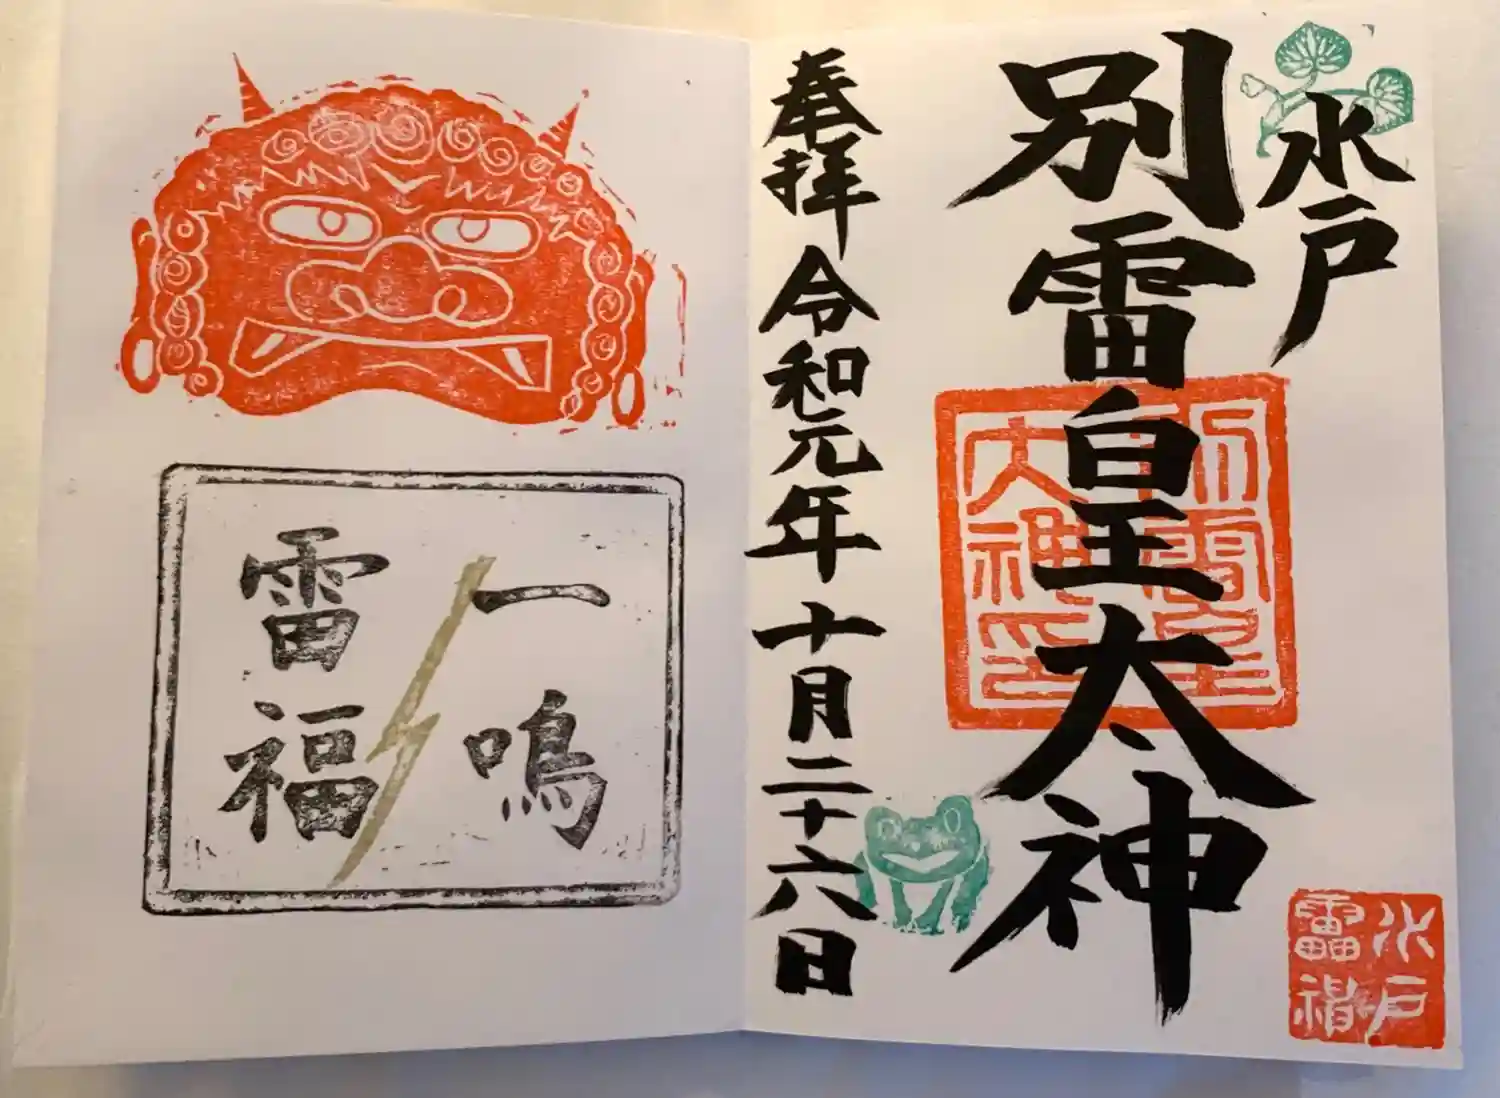 水戸
別雷皇太神
奉拝 令和元年十月二十六日
別雷皇
大神印
水戸
雷神
一鳴
雷福